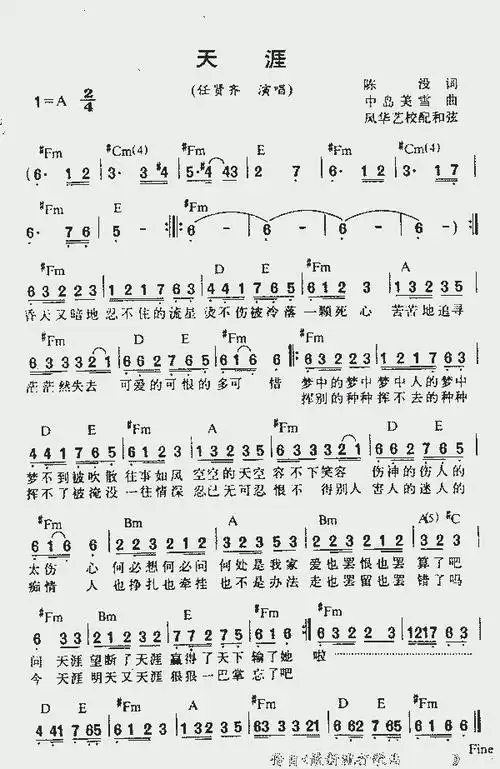 天 涯
(任贤齐 演唱)
1=A 2/4
陈 没 词
中岛美雪 曲
风华艺校配和弦
#Fm #Cm(4) A E #Fm #Cm(4)
(6· 1 2 | 3· 3 #4 | 5·#4 43 | 2 7 | 6· 1 2 | 3· 1 7 |
#Fm E #Fm
6· 7 6 | 5 - :‖: 6 - | 6 - | 6 - | 6 - ) 7 6 :‖
#Fm D E #Fm A
6 3 2 2 3 | 1 2 1 7 6 3 | 4 4 1 7 6 5 | 6 1 2 3 | 1 3 2 3 5 |
昏天又暗地 忍不住的流星 烫不伤被冷落 一颗死心 苦苦地追寻
#Fm D E #Fm
6 3 3 3 2 1 | 6 6 2 7 6 5 | 6 1 6 6 ‖: 6 3 2 2 3 | 1 2 1 7 6 3 |
茫茫然失去 可爱的可恨的多可 惜 梦中的梦中 梦中人的梦中
挥别的种种 挥不去的种种
D E #Fm A #Fm D E
4 4 1 7 6 5 | 6 1 2 3 | 1 3 2 3 5 | 6 3 3 3 2 1 | 6 6 2 7 6 5 |
梦不到被吹散 往事如风 空空的天空 容不下笑容 伤神的伤人的
挥不了被淹没 一往情深 忍已无可忍 恨不 得别人 害人的迷人的
#Fm Bm A Bm A(5) #C
6 1 6 6 | 2 2 3 2 2 3 | 3 2 1 2 3 5 | 2 2 3 2 2 3 | 3 2 3 |
太伤 心 何必想何必问 何处是我家 爱也罢恨也罢 算了吧
痴情 人 也挣扎也牵挂 也不是办法 走也罢留也罢 错了吗
#Fm Bm E #Fm #Fm
6 3 3 | 2 1 2 3 2 | 7 7 2 7 5 | 6 1 6 | 6 3 3 3 | 1217 63 |
问 天涯 望断了天涯 赢得了天下 输了她 啦
今 天涯 明天又天涯 狠狠一巴掌 忘了吧
D E #Fm A #Fm D E
4 41 7 65 | 6 1 2 3 | 1 3 2 3 5 | 6 3 3 3 2 1 | 6 62 7 65 | 6 - ‖
Fine